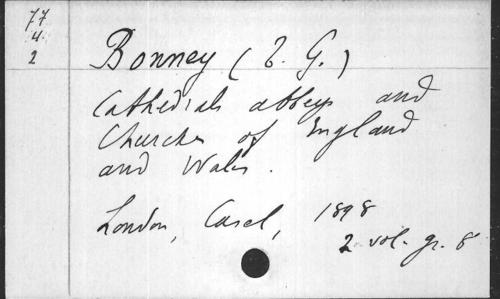 77
4
2
Bonney (T. G.)
Cathedrals abbeys and
Churches of England
and Wales.
London, Cassel, 1898
2 vol. gr. 8